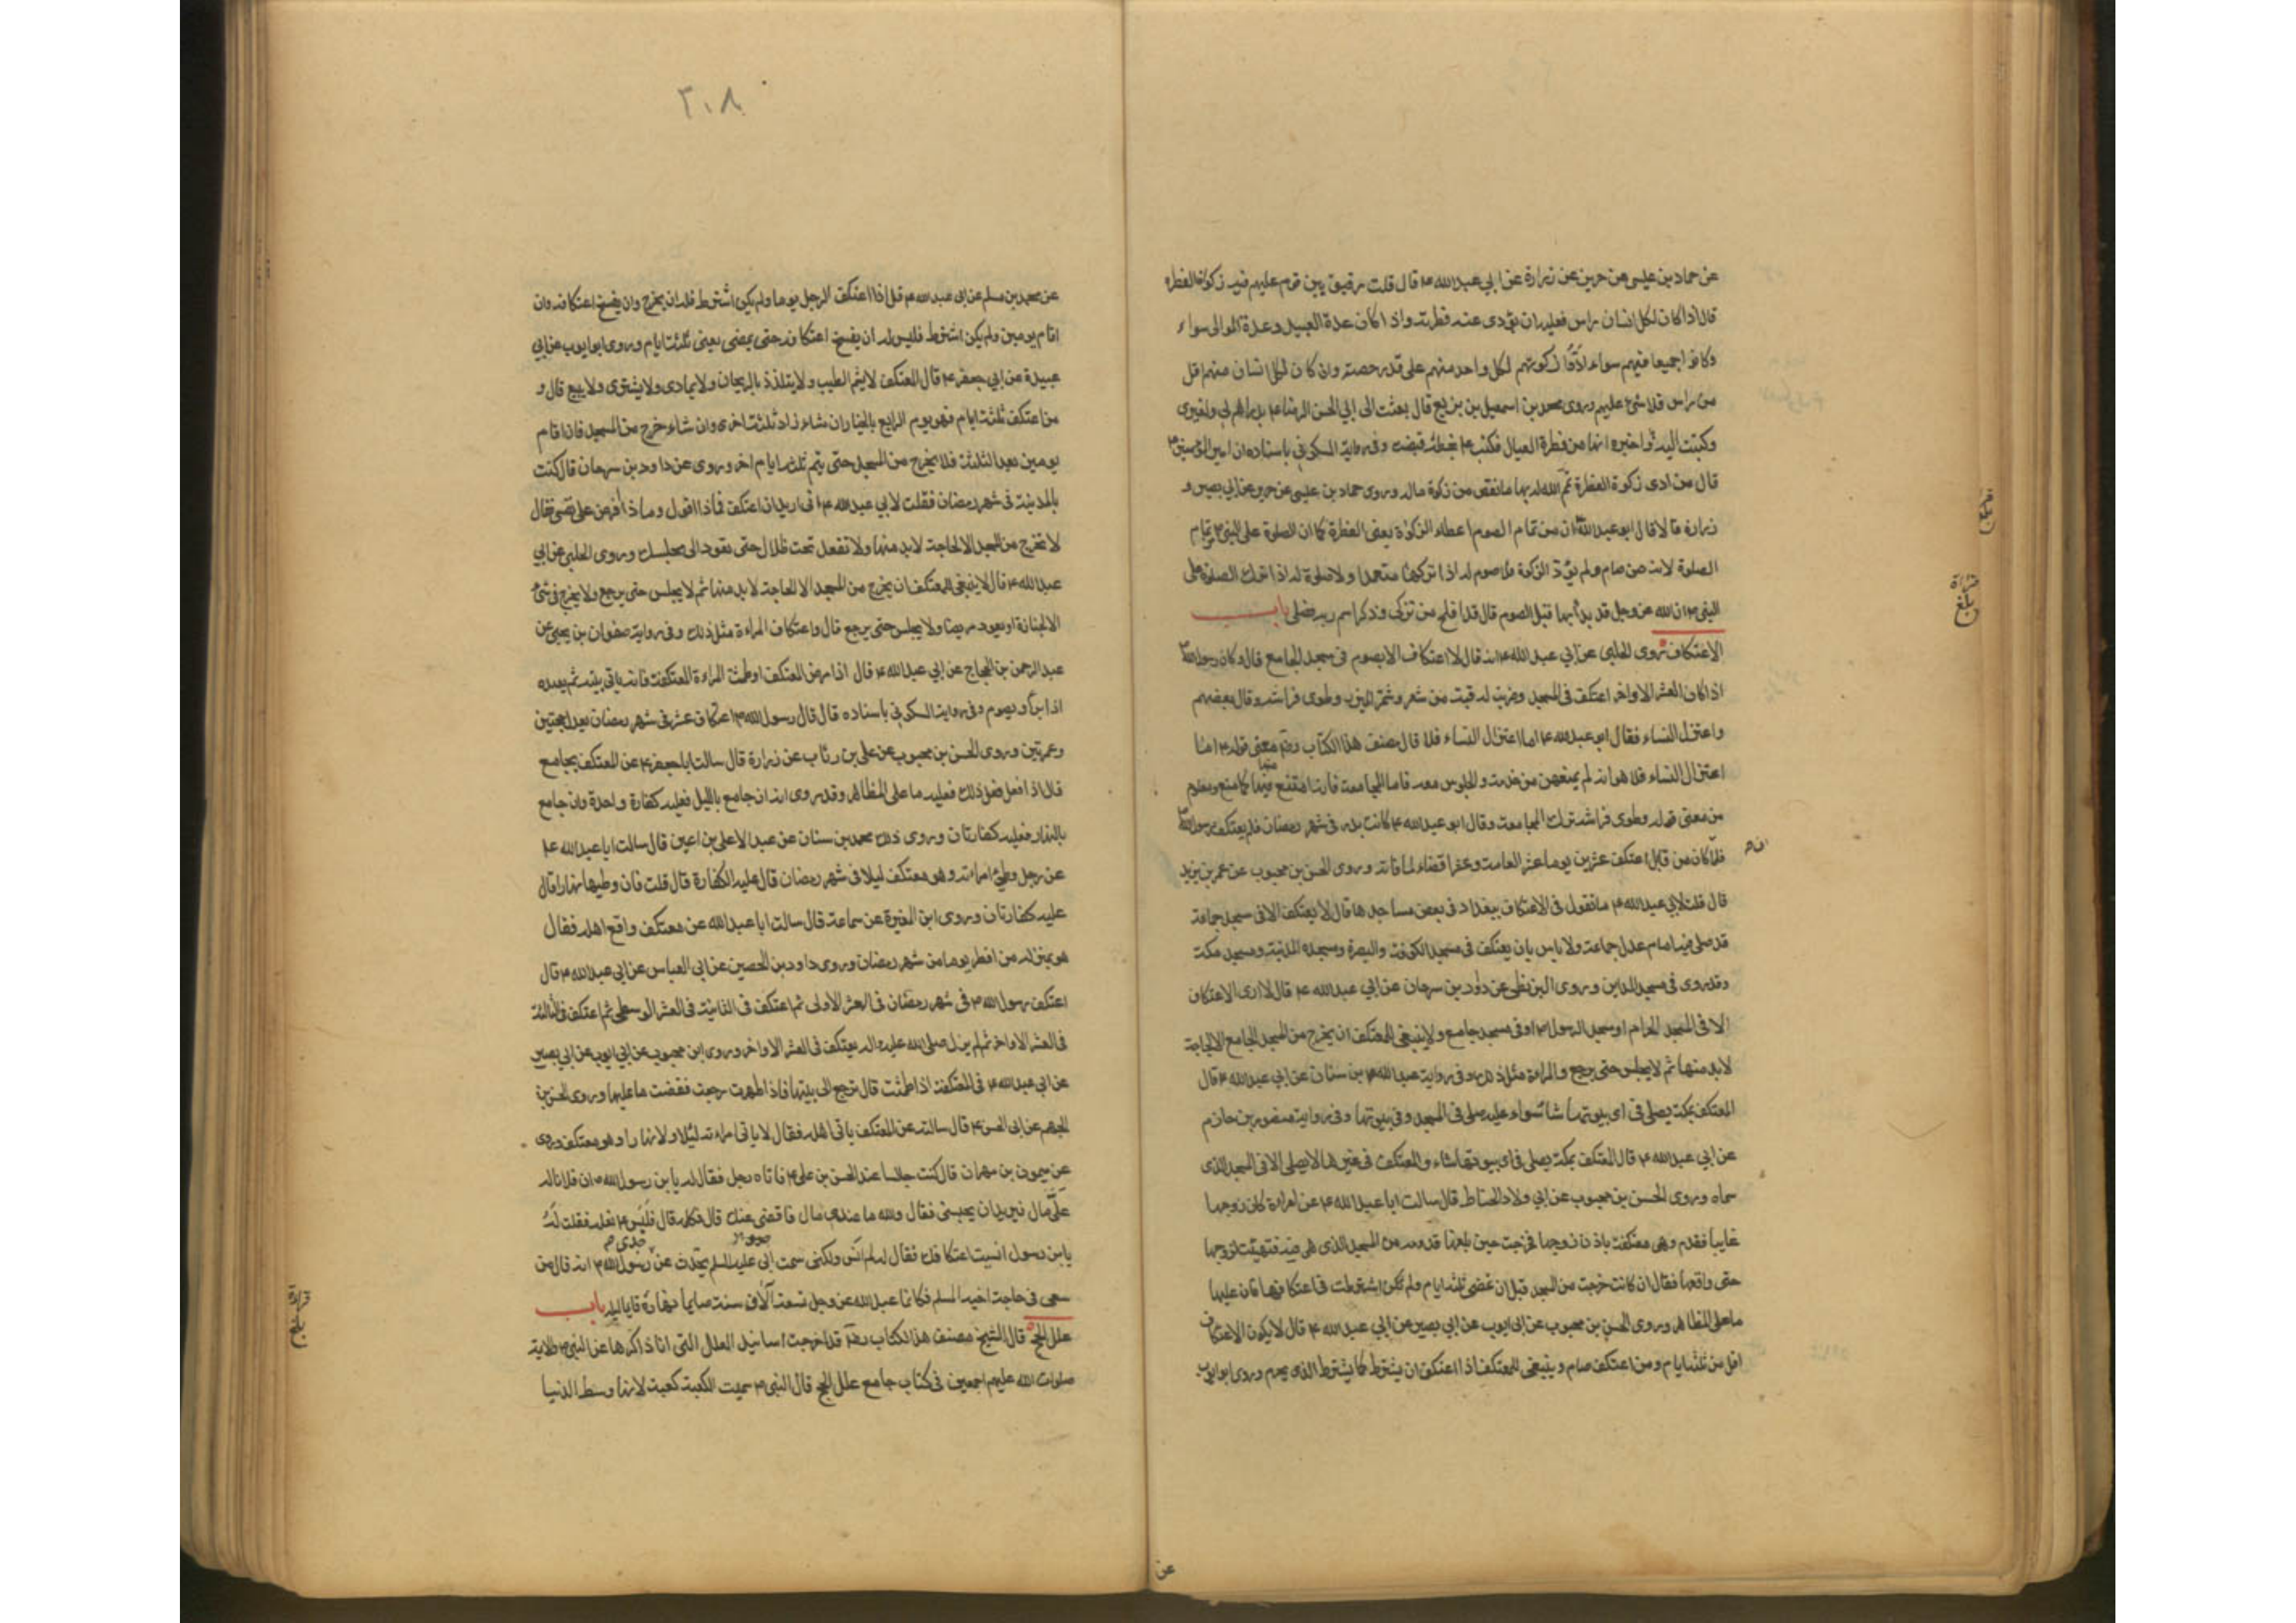 عن حماد بن عيسى عن حريز عن زرارة عن ابي عبد الله ع قال قلت رقيق بين قوم عليهم فيه زكوة الفطرة
قال اذا كان لكل انسان راس فعليه ان يؤدى عنه فطرته واذا كان عدة العبيد وعدة الموالى سواء
وكانوا جميعا فيهم سواء ادّوا زكوتهم لكل واحد منهم على قدر حصته وان كان لكل انسان منهم اقل
من راس فلا شئ عليهم وروى محمد بن اسمعيل بن بزيع قال بعثت الى ابي الحسن الرضا ع بدراهم لى ولغيرى
وكتبت اليه اخبره انها من فطرة العيال فكتب ع بخطه قبضت وفى رواية السكونى باسناده ان امير المؤمنين ع
قال من ادى زكوة الفطرة تمّ الله له بها ما نقص من زكوة ماله وروى حماد بن عيسى عن حريز عن ابي بصير و
زرارة قالا قال ابو عبد الله ان من تمام الصوم اعطاء الزكوة يعنى الفطرة كما ان الصلوة على النبى من تمام
الصلوة لانه من صام ولم يؤدّ الزكوة فلا صوم له اذا تركها متعمدا ولا صلوة له اذا ترك الصلوة على
النبى ان الله عز وجل قد بدأ بها قبل الصوم قال قد افلح من تزكى وذكر اسم ربه فصلى باب
الاعتكاف روى الحلبى عن ابي عبد الله ع انه قال لا اعتكاف الا بصوم فى مسجد الجامع قال وكان رسول الله
اذا كان العشر الاواخر اعتكف فى المسجد وضربت له قبة من شعر وشمّر الميزر وطوى فراشه وقال بعضهم
واعتزل النساء فقال ابو عبد الله ع اما اعتزال النساء فلا قال مصنف هذا الكتاب ره معنى قوله ع اما
اعتزال النساء فلا هو انه لم يمنعهن من خدمته والجلوس معه فاما المجامعة فانه امتنع منها كما منع ومعلوم
من معنى قوله وطوى فراشه ترك المجامعة وقال ابو عبد الله ع كانت بدر فى شهر رمضان فلم يعتكف رسول الله
فلما كان من قابل اعتكف عشرين يوما عشرا لعامه وعشرا قضاء لما فاته وروى الحسن بن محبوب عن عمر بن يزيد
قال قلت لابي عبد الله ع ما تقول فى الاعتكاف ببغداد فى بعض مساجدها قال لا يعتكف الا فى مسجد جماعة
قد صلى فيه امام عدل جماعة ولا باس بان يعتكف فى مسجد الكوفة والبصرة ومسجد المدينة ومسجد مكة
وقد روى فى مسجد المداين وروى البزنطى عن داود بن سرحان عن ابي عبد الله ع قال لا ارى الاعتكاف
الا فى المسجد الحرام او مسجد الرسول او فى مسجد جامع ولا ينبغى للمعتكف ان يخرج من المسجد الجامع الا لحاجة
لابد منها ثم لا يجلس حتى يرجع والمراة مثل ذلك وفى رواية عبد الله بن سنان عن ابي عبد الله ع قال
المعتكف بمكة يصلى فى اى بيوتها شاء سواء عليه صلى فى المسجد وفى بيوتها وفى رواية منصور بن حازم
عن ابي عبد الله ع قال المعتكف بمكة يصلى فى اى بيوتها شاء والمعتكف فى غيرها لا يصلى الا فى المسجد الذى
سماه وروى الحسن بن محبوب عن ابي ولاد الحناط قال سالت ابا عبد الله ع عن امراة كان زوجها
غايبا فقدم وهى معتكفة باذن زوجها فخرجت حين بلغها قدومه من المسجد الذى هى فيه فتهيئت لزوجها
حتى واقعها فقال ان كانت خرجت من المسجد قبل ان تمضى ثلثة ايام ولم تكن اشترطت فى اعتكافها فان عليها
ما على المظاهر وروى الحسن بن محبوب عن ابى ايوب عن ابي بصير عن ابي عبد الله ع قال لا يكون الاعتكاف
اقل من ثلثة ايام ومن اعتكف صام وينبغى للمعتكف اذا اعتكف ان يشترط كما يشترط الذى يحرم وروى ابو ايوب
عن
قراة
بلغ
٣٠٨
عن محمد بن مسلم عن ابى عبد الله ع قال اذا اعتكف الرجل يوما ولم يكن اشترط فله ان يخرج وان يفسخ اعتكافه وان
اقام يومين ولم يكن اشترط فليس له ان يفسخ اعتكافه حتى يمضى يعنى ثلثة ايام وروى ابو ايوب عن ابي
عبيدة عن ابي جعفر ع قال المعتكف لا يشم الطيب ولا يتلذذ بالريحان ولا يمارى ولا يشترى ولا يبيع قال و
من اعتكف ثلثة ايام فهو يوم الرابع بالخيار ان شاء زاد ثلثة اخرى وان شاء خرج من المسجد فان اقام
يومين بعد الثلثة فلا يخرج من المسجد حتى يتم ثلثة ايام اخر وروى عن داود بن سرحان قال كنت
بالمدينة فى شهر رمضان فقلت لابي عبد الله ع انى اريد ان اعتكف فماذا اقول وماذا افرض على نفسى فقال
لا تخرج من المسجد الا لحاجة لابد منها ولا تقعد تحت ظلال حتى تعود الى مجلسك وروى الحلبى عن ابي
عبد الله ع قال لا ينبغى للمعتكف ان يخرج من المسجد الا لحاجة لابد منها ثم لا يجلس حتى يرجع ولا يخرج فى شئ
الا لجنازة او يعود مريضا ولا يجلس حتى يرجع قال واعتكاف المراءة مثل ذلك وفى رواية صفوان بن يحيى عن
عبد الرحمن بن الحجاج عن ابي عبد الله ع قال اذا مرض المعتكف او طمثت المراءة المعتكفة فانه ياتى بيته ثم يعيده
اذا برأ ويصوم وفى رواية السكونى باسناده قال قال رسول الله اعتكاف عشر فى شهر رمضان يعدل حجتين
وعمرتين وروى الحسن بن محبوب عن على بن رئاب عن زرارة قال سالت ابا جعفر ع عن المعتكف يجامع
قال اذا فعل ذلك فعليه ما على المظاهر وقد روى انه ان جامع بالليل فعليه كفارة واحدة وان جامع
بالنهار فعليه كفارتان وروى ذلك محمد بن سنان عن عبد الاعلى بن اعين قال سالت ابا عبد الله ع
عن رجل وطئ امراته وهو معتكف ليلا فى شهر رمضان قال عليه الكفارة قال قلت فان وطيها نهارا قال
عليه كفارتان وروى ابن المغيرة عن سماعة قال سالت ابا عبد الله عن معتكف واقع اهله فقال
هو بمنزلة من افطر يوما من شهر رمضان وروى داود بن الحصين عن ابى العباس عن ابي عبد الله ع قال
اعتكف رسول الله فى شهر رمضان فى العشر الاولى ثم اعتكف فى الثانية فى العشر الوسطى ثم اعتكف فى الثالثة
فى العشر الاواخر ثم لم يزل صلى الله عليه واله يعتكف فى العشر الاواخر وروى ابن محبوب عن ابي ايوب عن ابي بصير
عن ابى عبد الله ع فى المعتكفة اذا طمثت قال ترجع الى بيتها فاذا طهرت رجعت فقضت ما عليها وروى الحسن بن
الجهم عن ابى الحسن ع قال سالته عن المعتكف ياتى اهله فقال لا ياتى امراءته ليلا ولا نهارا وهو معتكف وروى
عن ميمون بن مهران قال كنت جالسا عند الحسن بن على ع فاتاه رجل فقال له يا بن رسول الله ان فلانا له
علىّ مال فيريد ان يحبسنى فقال والله ما عندى مال فاقضى عنك قال فكلمه قال فلبس ع نعله فقلت له
يا ابن رسول انسيت اعتكافك فقال له لم انس ولكنى سمعت ابى عليه السلم يحدث عن جدى رسول الله انه قال من
سعى فى حاجة اخيه المسلم فكانما عبد الله عز وجل تسعة آلاف سنة صايما نهاره قايما ليله باب
علل الحج قال الشيخ مصنف هذا الكتاب ره قد اخرجت اسانيد العلل التى انا ذاكرها عن النبى والائمة
صلوات الله عليهم اجمعين فى كتاب جامع علل الحج قال النبى سميت الكعبة كعبة لانها وسط الدنيا
قراة
بلغ